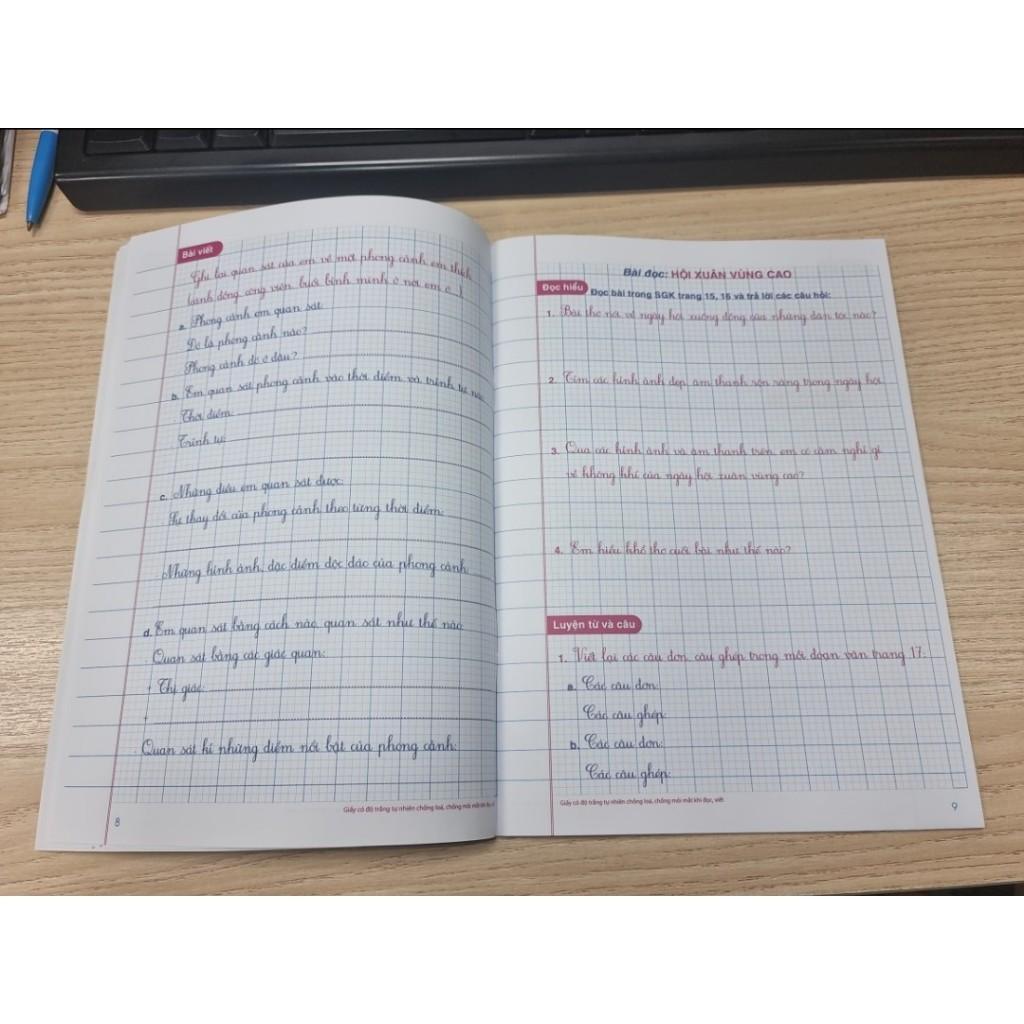 Bài viết
Ghi lại quan sát của em về một phong cảnh em thích
(cánh đồng, công viên, buổi bình minh ở nơi em ở...)
a. Phong cảnh em quan sát:
Đó là phong cảnh nào?
Phong cảnh đó ở đâu?
b. Em quan sát phong cảnh vào thời điểm và trình tự nào
Thời điểm:
Trình tự:
c. Những điều em quan sát được:
Sự thay đổi của phong cảnh theo từng thời điểm:
Những hình ảnh, đặc điểm độc đáo của phong cảnh:
d. Em quan sát bằng cách nào, quan sát như thế nào
Quan sát bằng các giác quan:
+ Thị giác:
+
Quan sát kĩ những điểm nổi bật của phong cảnh:
Giấy có độ trắng tự nhiên chống loá, chống mỏi mắt khi đọc, v
8
Bài đọc: HỘI XUÂN VÙNG CAO
Đọc hiểu Đọc bài trong SGK trang 15, 16 và trả lời các câu hỏi:
1. Bài thơ nói về ngày hội xuống đồng của những dân tộc nào?
2. Tìm các hình ảnh đẹp, âm thanh rộn ràng trong ngày hội
3. Qua các hình ảnh và âm thanh trên, em có cảm nghĩ gì
về không khí của ngày hội xuân vùng cao?
4. Em hiểu khổ thơ cuối bài như thế nào?
Luyện từ và câu
1. Viết lại các câu đơn, câu ghép trong mỗi đoạn văn trang 17:
a. Các câu đơn:
Các câu ghép:
b. Các câu đơn:
Các câu ghép:
Giấy có độ trắng tự nhiên chống loá, chống mỏi mắt khi đọc, viết
9